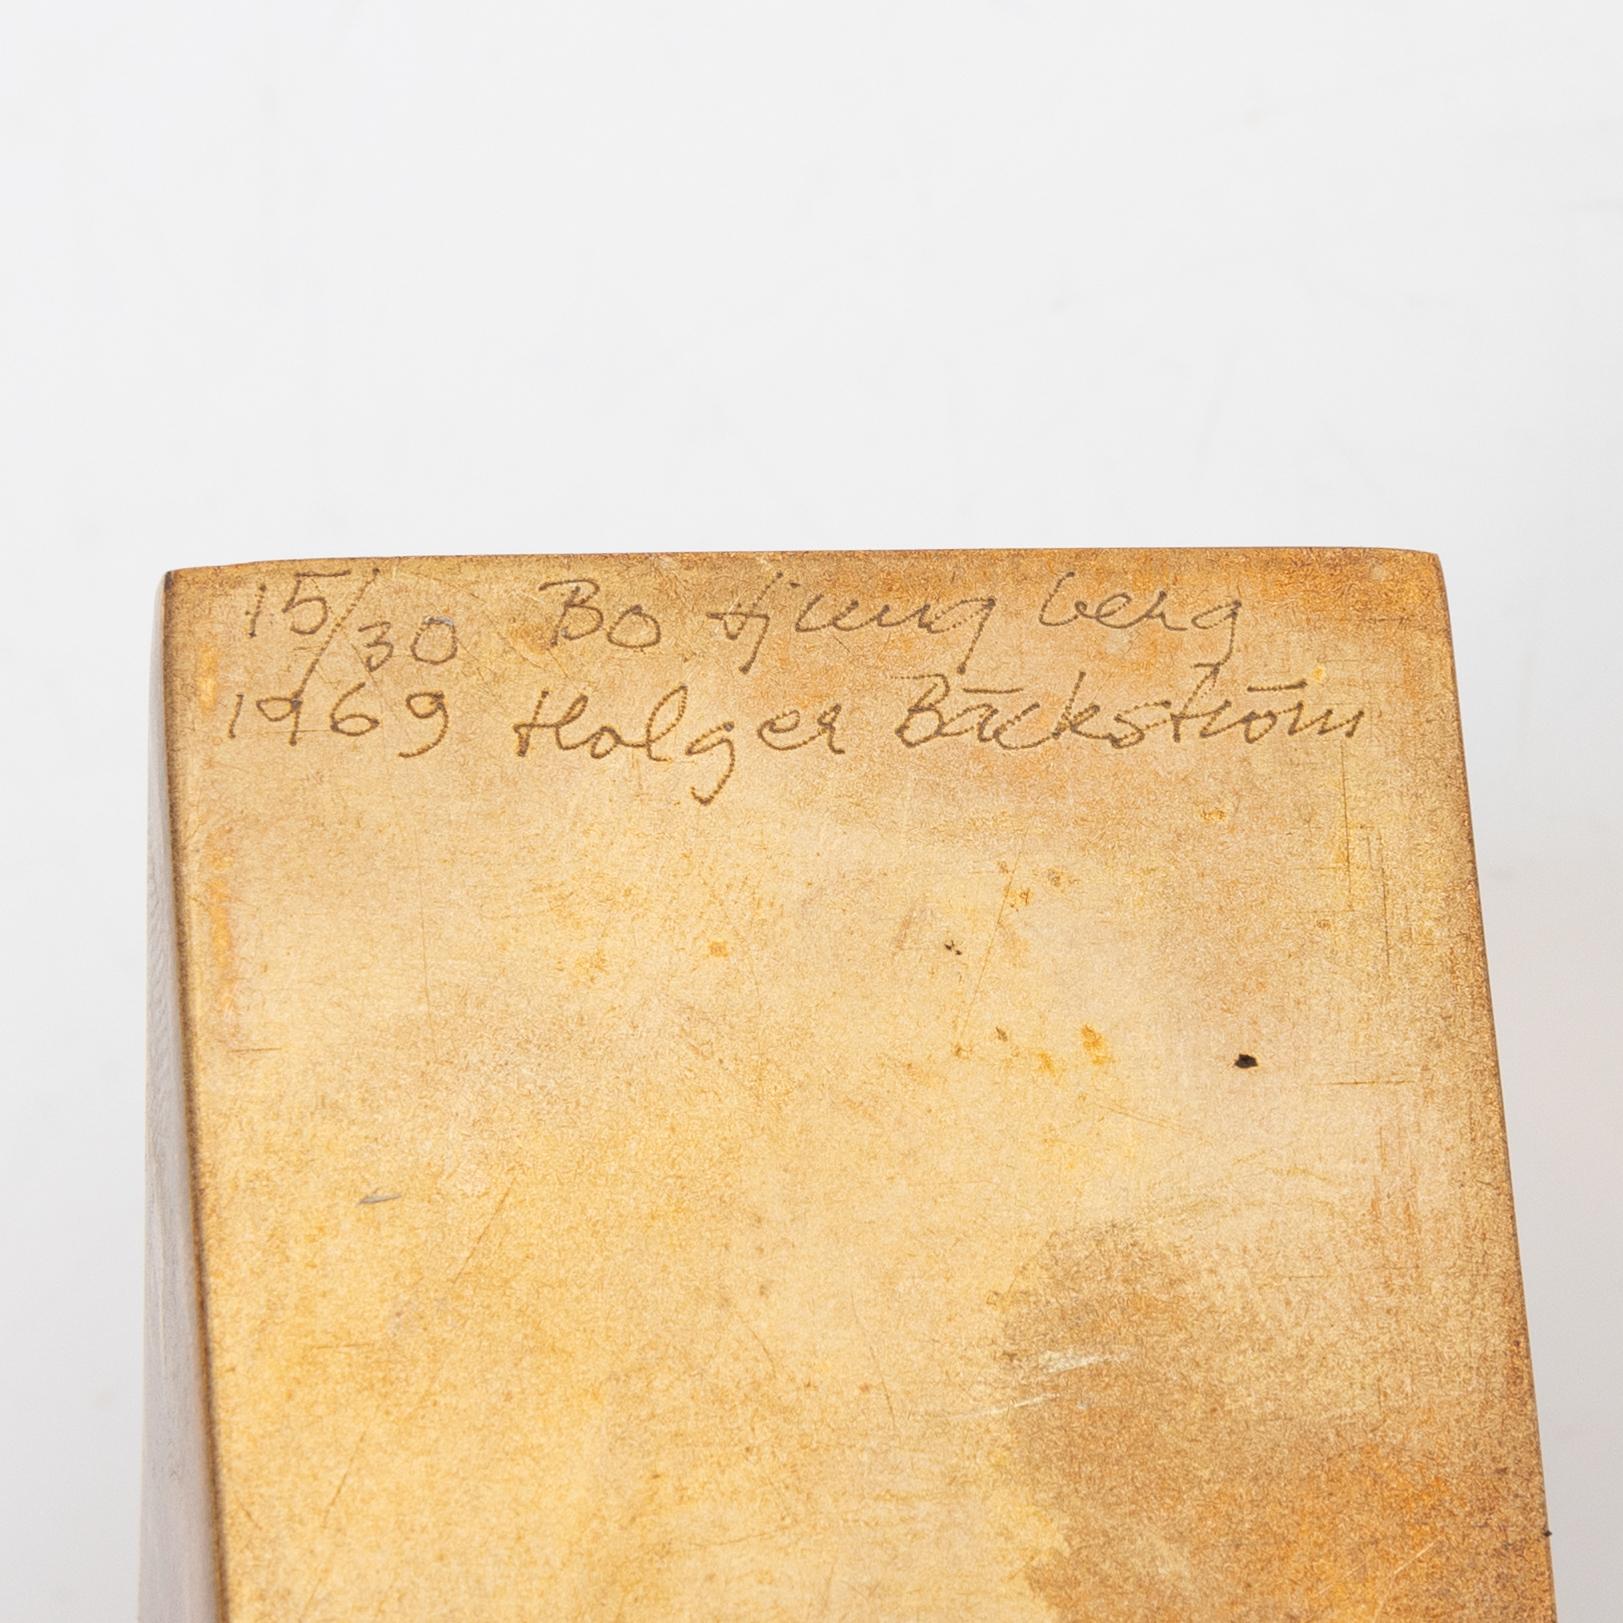 15/30 Bo Ljungberg
1969 Holger Bäckström